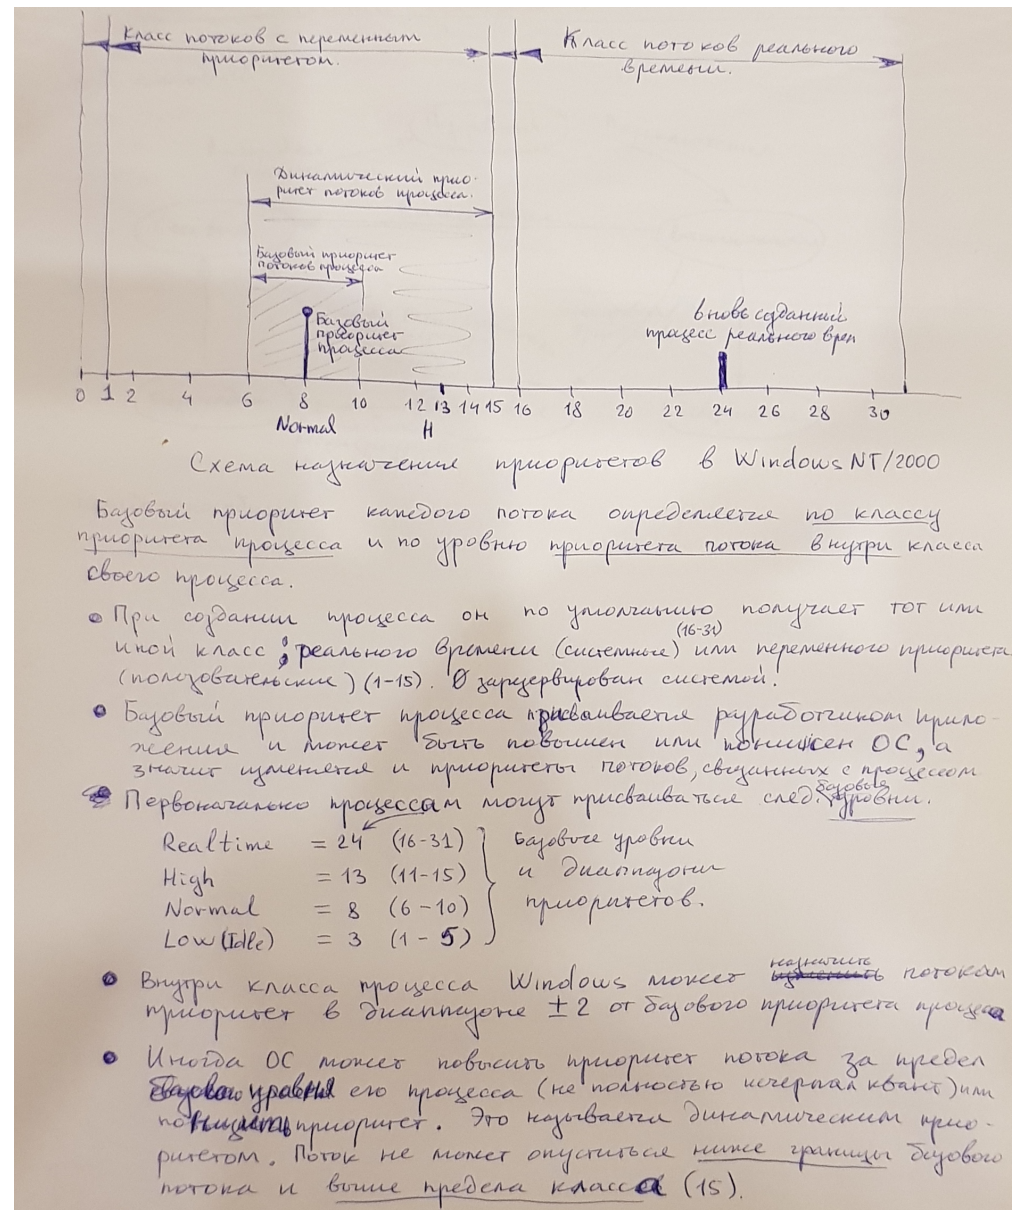 Класс потоков с переменным
приоритетом.
Класс потоков реального
времени.
Динамический прио-
ритет потоков процесса.
Базовый приоритет
потоков процесса
Базовый
приоритет
процесса
вновь созданный
процесс реального врем
0 1 2 4 6 8 10 12 13 14 15 16 18 20 22 24 26 28 30
Normal H
Схема назначения приоритетов в Windows NT/2000
Базовый приоритет каждого потока определяется по классу
приоритета процесса и по уровню приоритета потока внутри класса
своего процесса.
• При создании процесса он по умолчанию получает тот или
иной класс: реального времени (системные) (16-31) или переменного приоритета
(пользовательские) (1-15). 0 зарезервирован системой.
• Базовый приоритет процесса присваивается разработчиком прило-
жения и может быть повышен или понижен ОС, а
значит изменяется и приоритеты потоков, связанных с процессом
• Первоначально процессам могут присваиваться след. базовые уровни.
Realtime = 24 (16-31)
High = 13 (11-15)
Normal = 8 (6-10)
Low (Idle) = 3 (1-5)
Базовые уровни
и диаппазони
приоритетов.
• Внутри класса процесса Windows может назначить потокам
приоритет в диаппазоне ±2 от базового приоритета процесса
• Иногда ОС может повысить приоритет потока за предел
базового уровня его процесса (не полностью исчерпал квант) или
понизить приоритет. Это называется динамическим прио-
ритетом. Поток не может опуститься ниже границы базового
потока и выше предела класса (15).